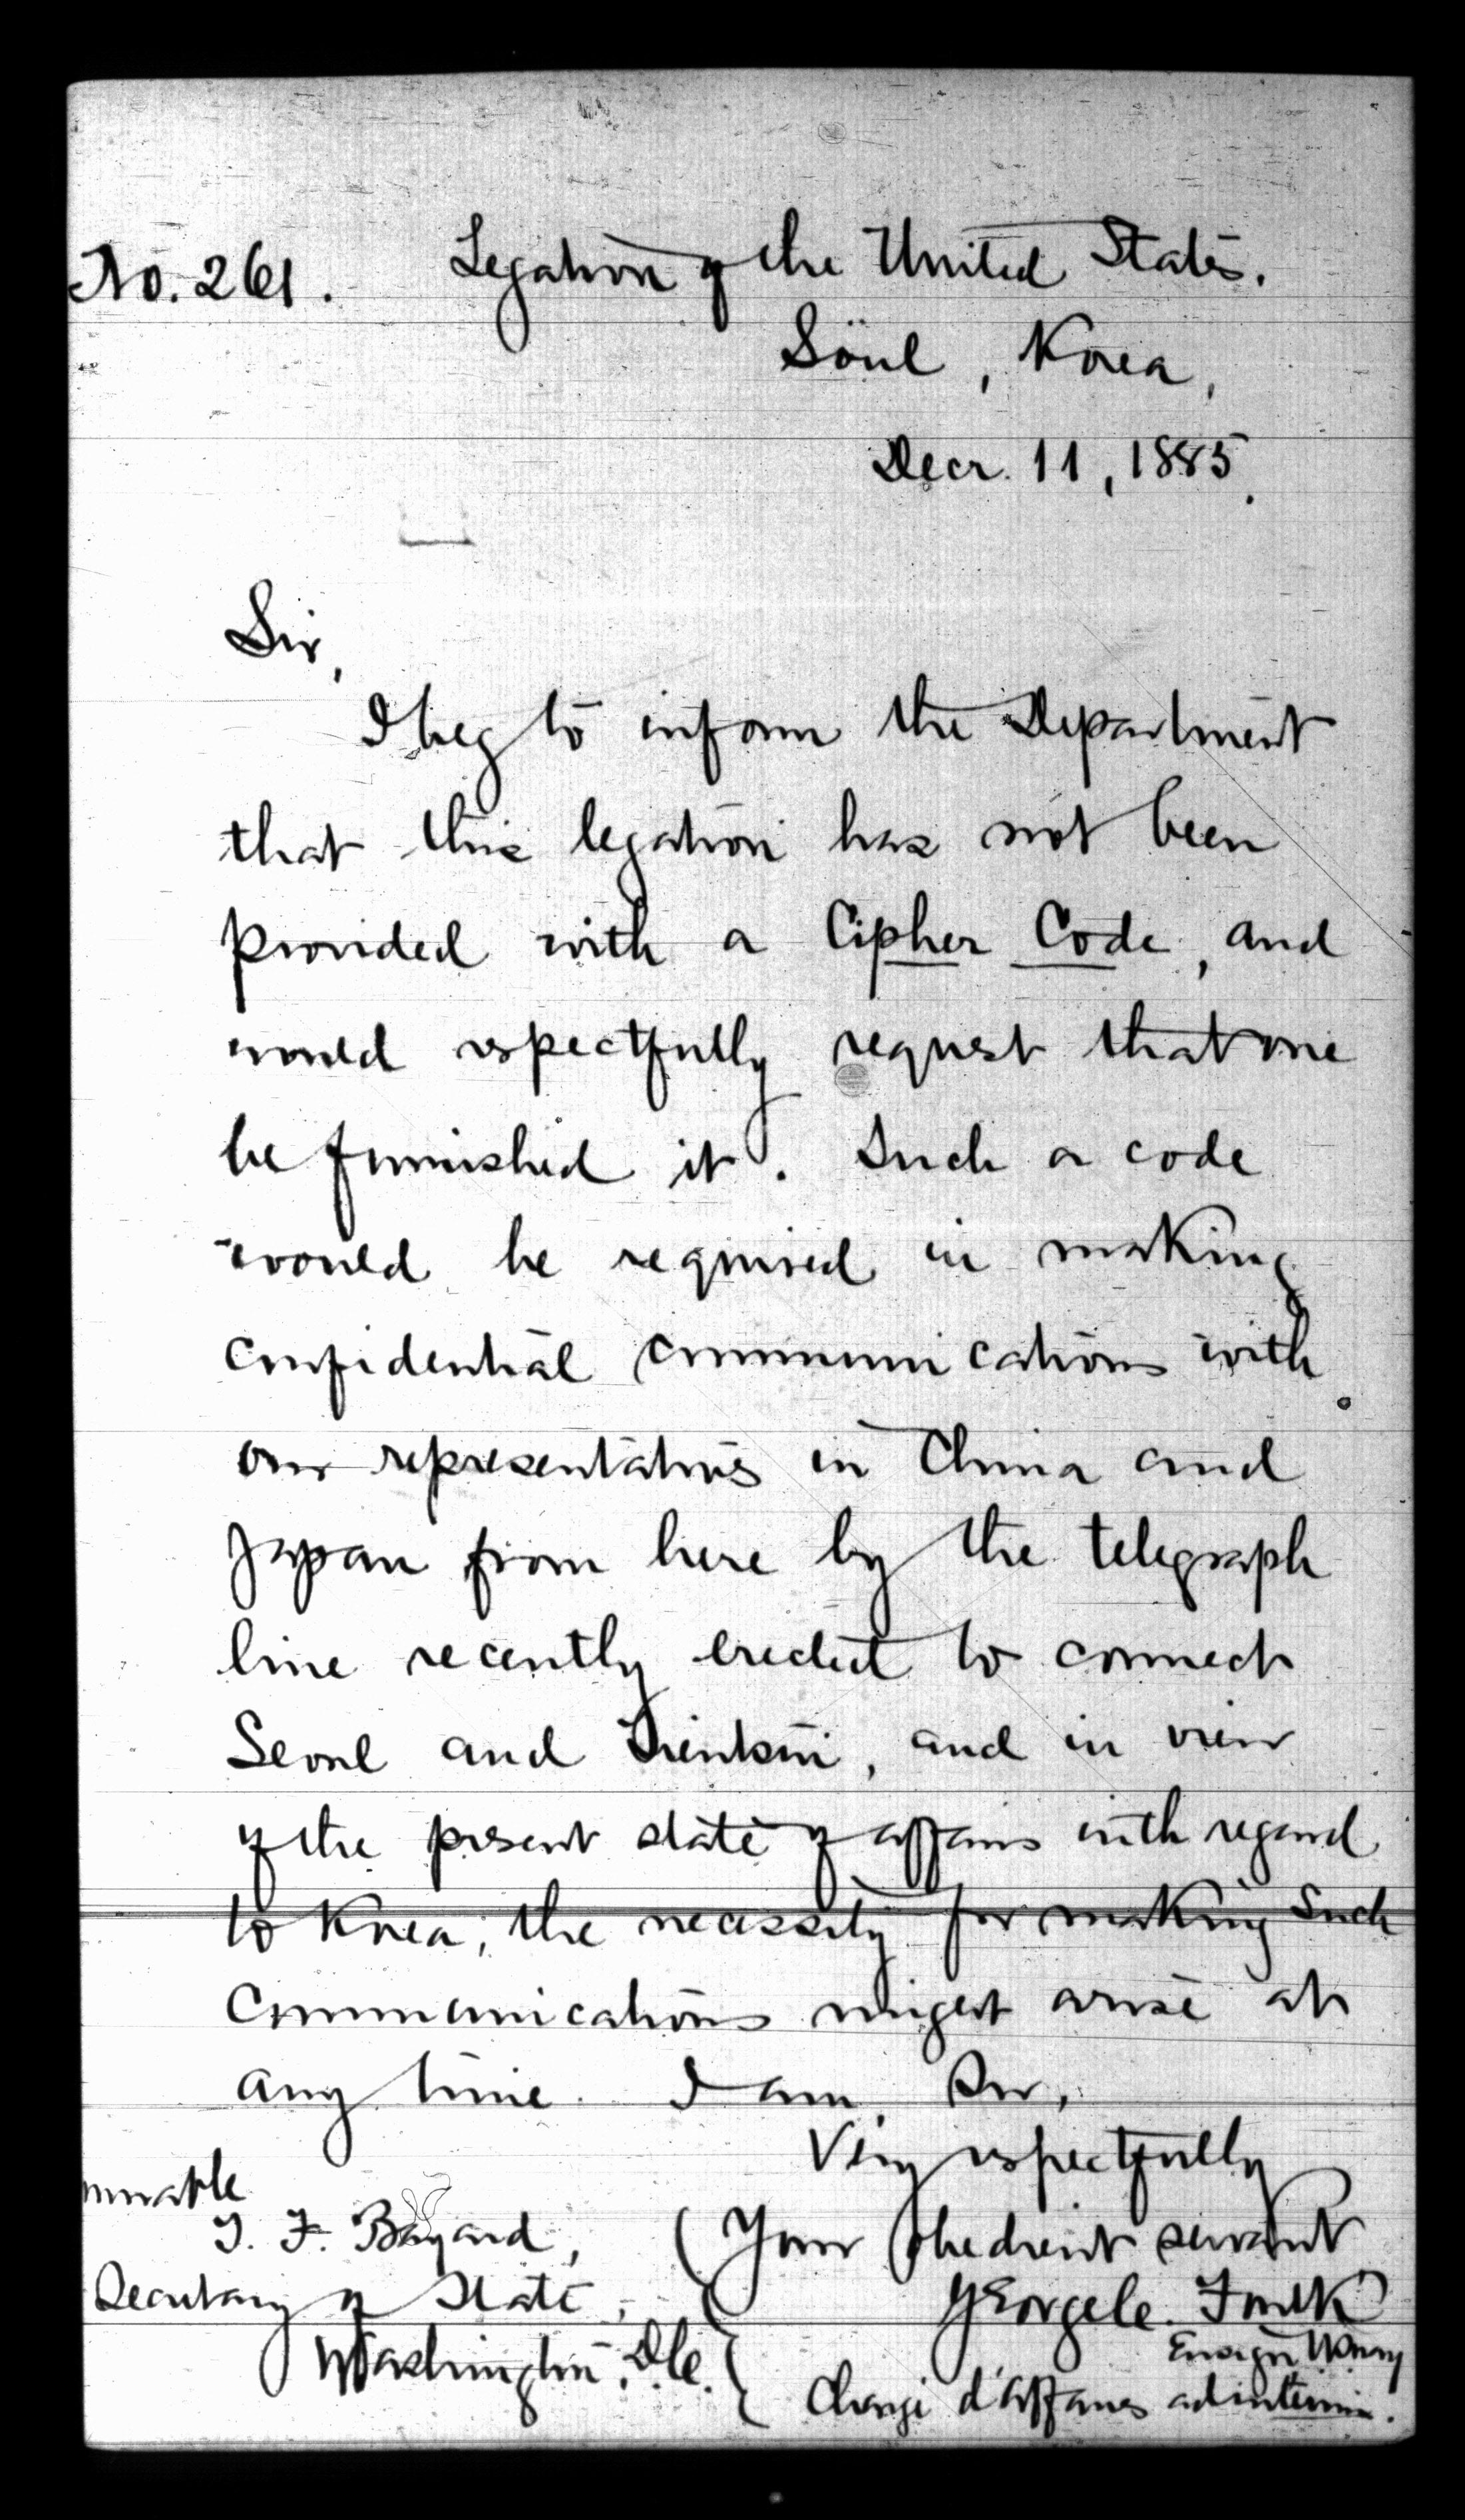 No. 261.
Legation of the United States.
Söul, Korea,
Decr. 11, 1885.
Sir,
I beg to inform the Department
that this legation has not been
provided with a Cipher Code, and
would respectfully request that one
be furnished it. Such a code
would be required in making
confidential communications with
our representatives in China and
Japan from here by the telegraph
line recently erected to connect
Seoul and Tientsin, and in view
of the present state of affairs with regard
to Korea, the necessity for making such
communications might arise at
any time. I am Sir,
Very respectfully
Your obedient servant
George C. Foulk
Ensign U.S. Navy
Chargé d'affaires ad interim.
T. F. Bayard,
Secretary of State,
Washington, D.C.